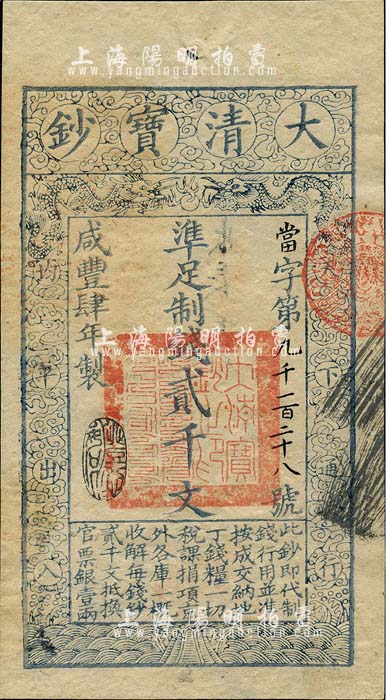 上海陽明拍賣
www.yangmingauction.com
大清寶鈔
當字第九千一百二十八號
準足制錢貳千文
咸豐肆年製
天下通行
均平出入
此鈔即代制
錢行用並准
按成交納地
丁錢糧一切
稅課捐項京
外各庫一概
收解每錢鈔
貳千文抵換
官票銀壹兩
上海陽明拍賣
www.yangmingauction.com
上海陽明拍賣
www.yangmingauction.com